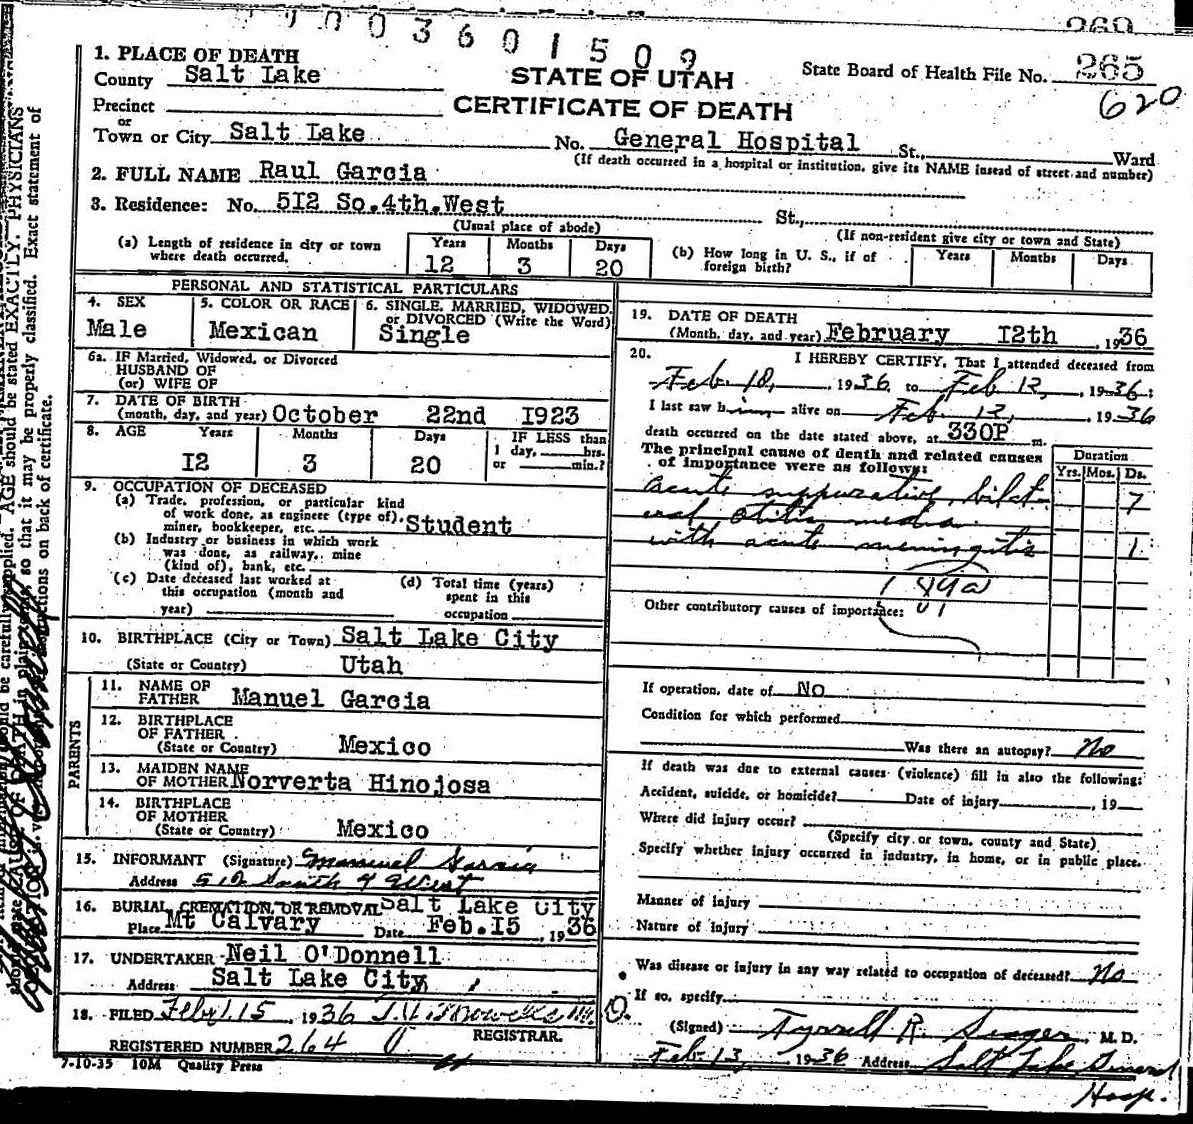 0003601509
269
1. PLACE OF DEATH
County Salt Lake
STATE OF UTAH
State Board of Health File No. 265
CERTIFICATE OF DEATH
620
Precinct
or
Town or City Salt Lake No. General Hospital St., Ward
(If death occurred in a hospital or institution, give its NAME instead of street and number)
2. FULL NAME Raul Garcia
3. Residence: No. 5I2 So.4th.West St.,
(Usual place of abode) (If non-resident give city or town and State)
(a) Length of residence in city or town where death occurred. Years 12 Months 3 Days 20
(b) How long in U. S., if of foreign birth? Years Months Days
PERSONAL AND STATISTICAL PARTICULARS
4. SEX Male
5. COLOR OR RACE Mexican
6. SINGLE, MARRIED, WIDOWED, or DIVORCED (Write the Word) Single
6a. IF Married, Widowed, or Divorced
HUSBAND OF
(or) WIFE OF
7. DATE OF BIRTH
(month, day, and year) October 22nd I923
8. AGE Years I2 Months 3 Days 20 IF LESS than 1 day, hrs. or min.?
9. OCCUPATION OF DECEASED
(a) Trade, profession, or particular kind
of work done, as engineer (type of),
miner, bookkeeper, etc. Student
(b) Industry or business in which work
was done, as railway, mine
(kind of), bank, etc.
(c) Date deceased last worked at
this occupation (month and
year)
(d) Total time (years)
spent in this
occupation
10. BIRTHPLACE (City or Town) Salt Lake City
(State or Country) Utah
PARENTS
11. NAME OF
FATHER Manuel Garcia
12. BIRTHPLACE
OF FATHER
(State or Country) Mexico
13. MAIDEN NAME
OF MOTHER Norverta Hinojosa
14. BIRTHPLACE
OF MOTHER
(State or Country) Mexico
15. INFORMANT (Signature) Manuel Garcia
Address 512 South 4 West
16. BURIAL, CREMATION, OR REMOVAL Salt Lake City
Place Mt Calvary Date Feb.I5, 1936
17. UNDERTAKER Neil O'Donnell
Address Salt Lake City
18. FILED Feby. 15, 1936
REGISTRAR.
REGISTERED NUMBER 264
7-10-35 10M Quality Press
19. DATE OF DEATH
(Month, day, and year) February I2th, 1936
20. I HEREBY CERTIFY, That I attended deceased from
Feb 10, 1936 to Feb 12, 1936;
I last saw him alive on Feb 12, 1936
death occurred on the date stated above, at 330P m.
The principal cause of death and related causes
of importance were as follows:
Duration
Yrs. Mos. Ds.
acute suppurative bilat- 7
eral otitis media
with acute meningitis 1
89a
Other contributory causes of importance:
If operation, date of No
Condition for which performed
Was there an autopsy? No
If death was due to external causes (violence) fill in also the following:
Accident, suicide, or homicide? Date of injury, 19
Where did injury occur?
(Specify city or town, county and State)
Specify whether injury occurred in industry, in home, or in public place.
Manner of injury
Nature of injury
Was disease or injury in any way related to occupation of deceased? No
If so, specify
(Signed) Tyrrell R. Seager, M. D.
Feb 13, 1936 Address Salt Lake General
Hosp.